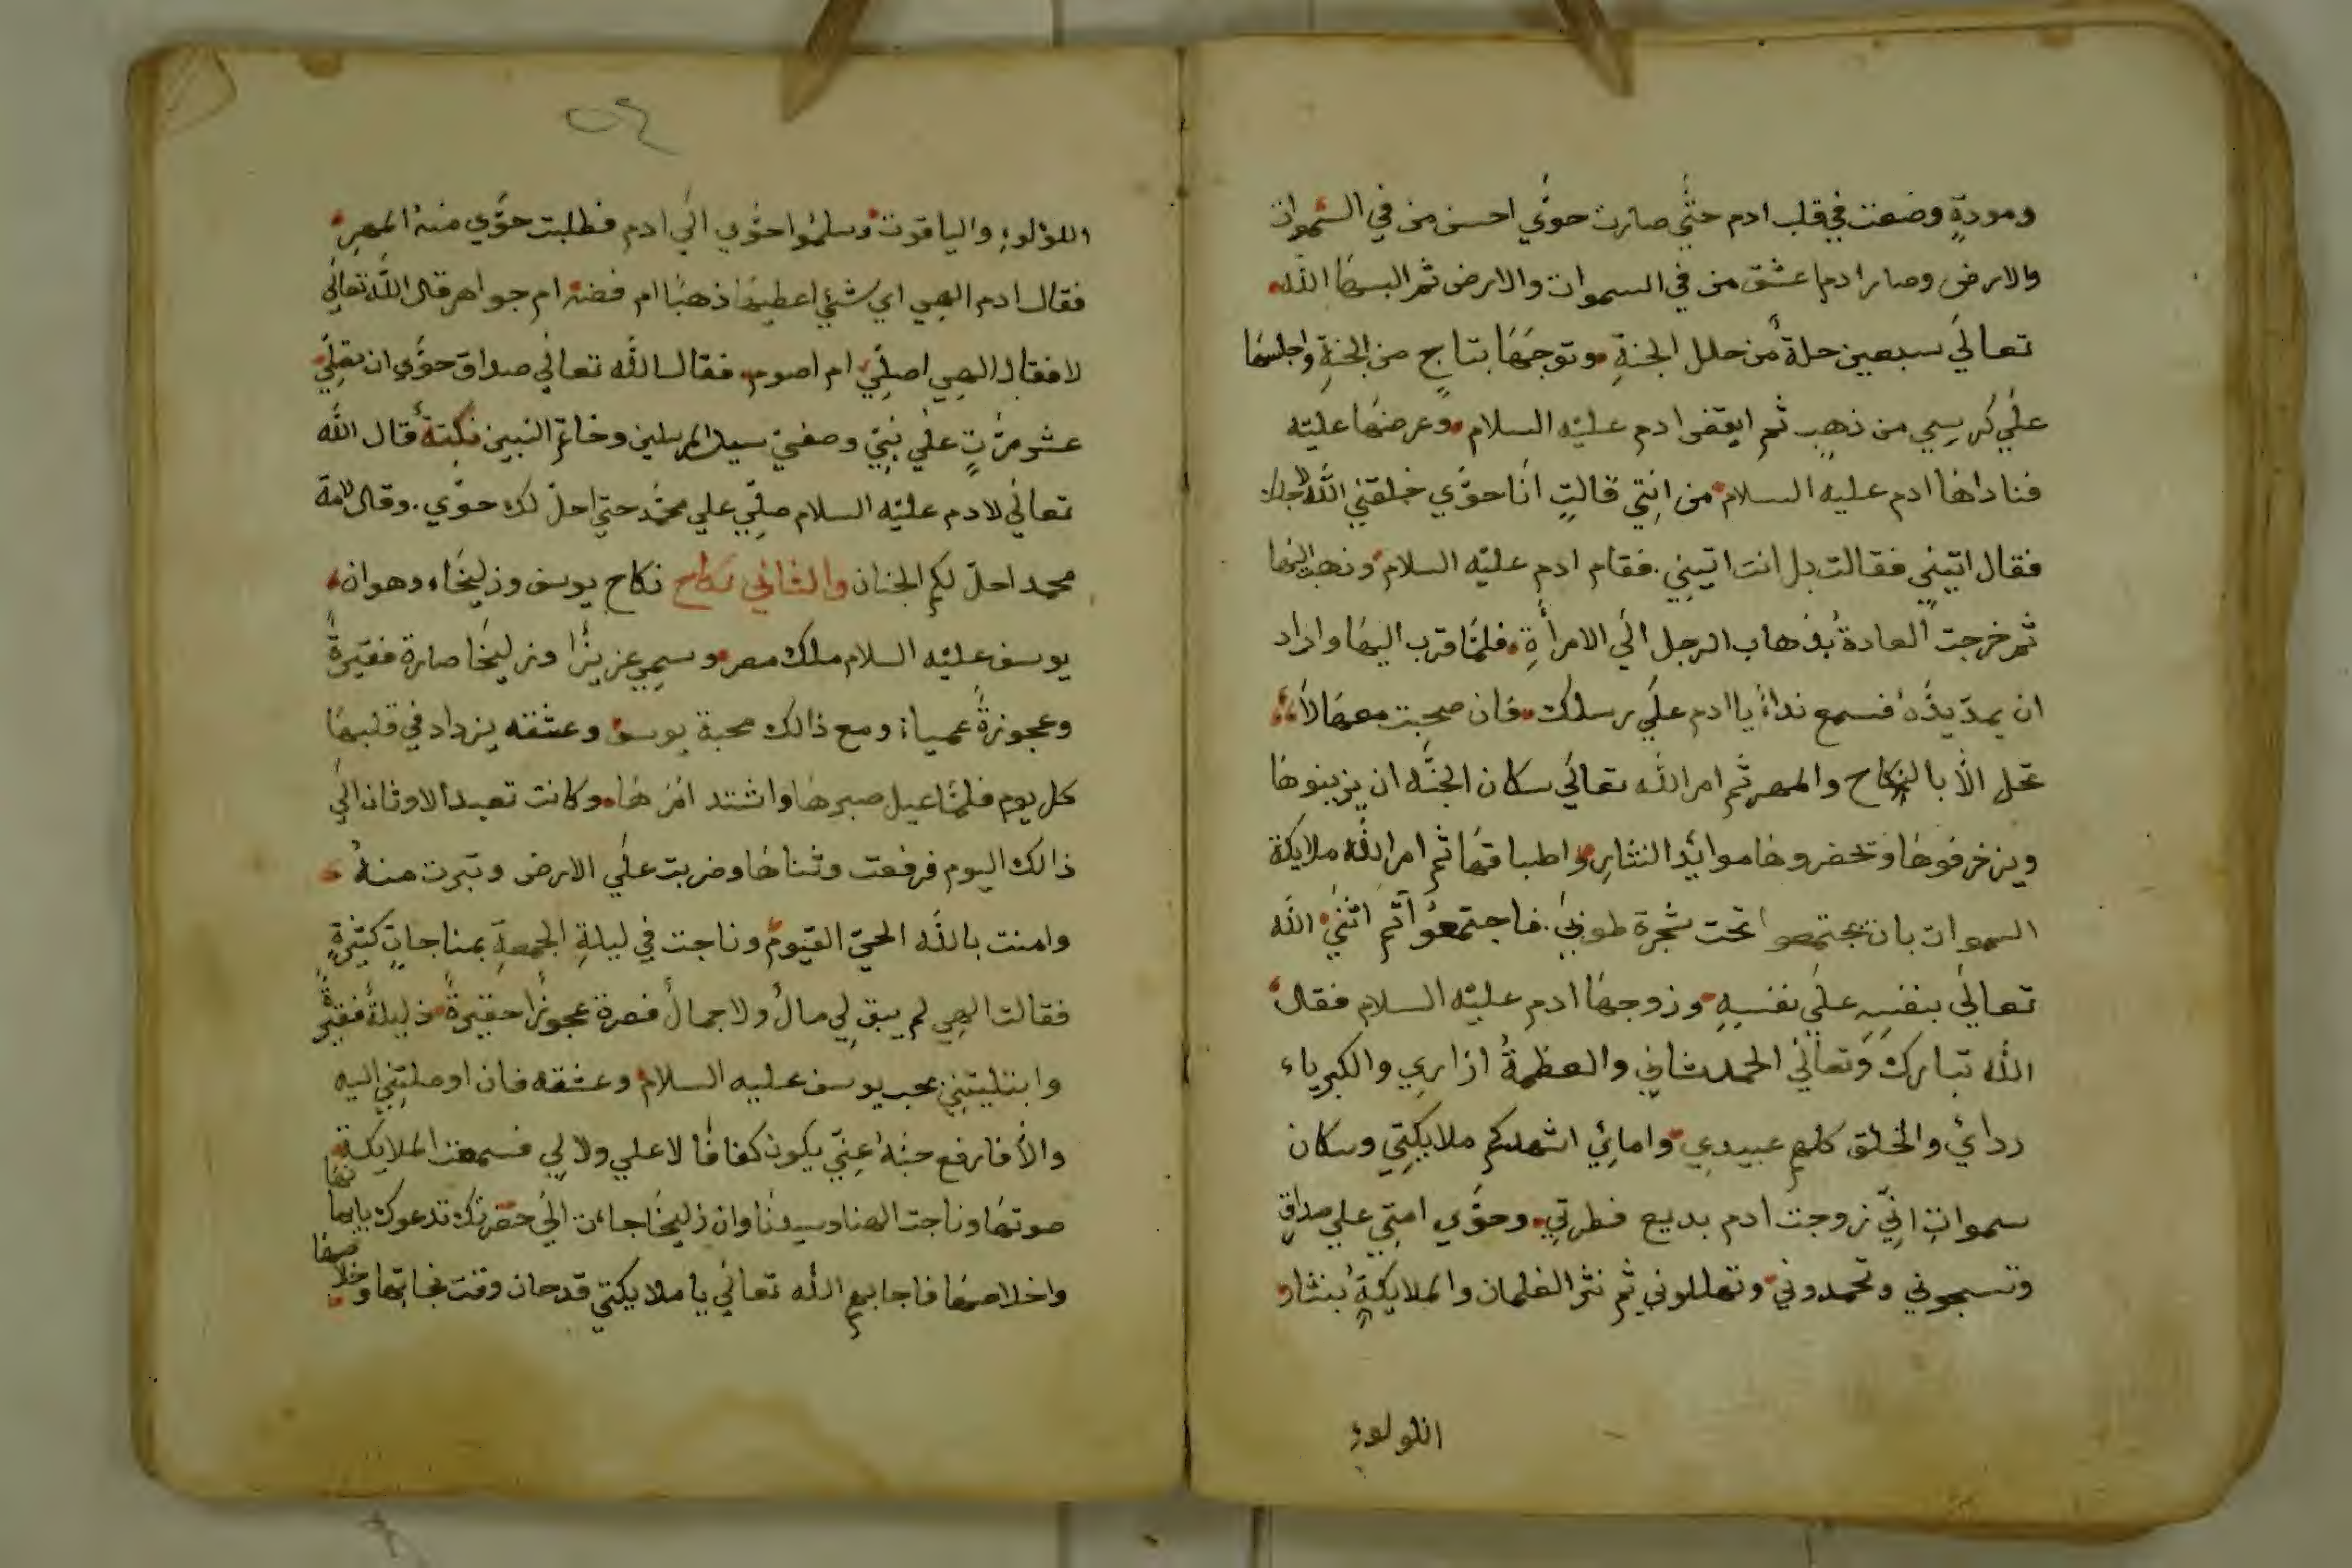 ومودةٍ وضعت في قلب ادم حتي صارت حوّي احسن من في السموات
والارض وصار ادم اعشق من في السموات والارض ثم البسها الله
تعالي سبعين حلة من حلل الجنةِ وتوجَهَا بتاجٍ من الجنةِ واجلسها
علي كرسِي من ذهبٍ ثم ايقض ادم عليْه السلام وعرضهَا عليْه
فناداهَا ادم عليه السلام من انتِي قالتٍ أنا حوّي خلقني الله لاجلك
فقال اتِيني فقالت بل انت اتيني. فقام ادم عليْه السلام وذهب اليها
ثم خرجت العادةُ بذهاب الرجل الي الامرأةِ فلمّا قرب اليهَا واراد
ان يمدّ يدُه فسمع نداءً يا ادم علي رسلك فان صحبت معهَا لا
تحل الّا بالنكاح والمهر ثم امر الله تعالي سكان الجنّه ان يزينوهَا
ويزخرفوهَا وتحضروهَا موائد النثارِ واطباقهَا ثم امر الله ملايكة
السموات بان يجتمعوا تحت شجرة طوبي. فاجتمعوُا ثم اثني الله
تعالي بنفسِهِ علي نفسِهِ وزوجهَا ادم عليْه السلام فقال
الله تبارك وَتعالَي الحمد ثنايي والعظمةُ ازارِي والكبرياء
ردائي والخلق كلهم عبيدِي وامائِي اشهدكم ملايكتِي وسكان
سمواتِي انِّي زوجت ادم بديع فطرتِي وحوّي امتِي علي صداقِ
وتسبحوني وتحمدوني وتهللوني ثم نثر الغلمان والملايكةِ بنثار
اللولوءِ
٥٤
اللؤلوءِ والياقوت وسلمُوا حوّي الَي ادم فطلبت حوّي منهُ المهرِ
فقال ادم الهِي اي شئٍ اعطيهَا ذهبًا ام فضه ام جواهر قال الله تعالَي
لا فقال الهِي اصلِّي ام اصوم فقال الله تعالَي صداق حوّي ان تصلِّي
عشر مرّتٍ علي نبِيّ وصفيّ سيد المرسلين وخاتم النبيين نكتة قال الله
تعالَي لادم عليْه السلام صلِّي علي محمّد حتي احلّ لك حوّي. وقال لامة
محمد احلّ لكم الجنان والثاني نكاح نكاح يوسف وزليخاء وهو ان
يوسف عليْه السلام ملك مصر وسمِي عزيزًا وزليخَا صارة فقيرةً
وعجوزةً عمياء ومع ذالك محبة يوسف وعشقه يزداد في قلبهَا
كل يوم فلمّا عيل صبرهَا واشتد امْرهَا وكانت تعبد الاوثان الَي
ذالك اليوم فرفعت وثناهَا وضربت علَي الارض وتبرت منهُ
وامنت بالله الحيّ القيّوم وناجت في ليلةِ الجمعةِ بمناجاتٍ كثيرةٍ
فقالت الهِي لم يبق لِي مالٌ ولا جمالٌ فصرة عجوزًا حقيرةً ذليلةً فقيرةً
وابتليتِني بحب يوسف عليه السلام وعشقه فان اوصلتِني اليه
والّا فارفع حبّهُ عنِّي يكون كفافًا لا علي ولا لِي فسمعت الملايكة
صوتهَا وناجت الهنا وسيدنا وان زليخَا جاءت الَي حضرتك تدعوك بايمانها
واخلاصهَا فاجابهم الله تعالَي يا ملايكتِي قد حان وقت نجاتها وخلاصها